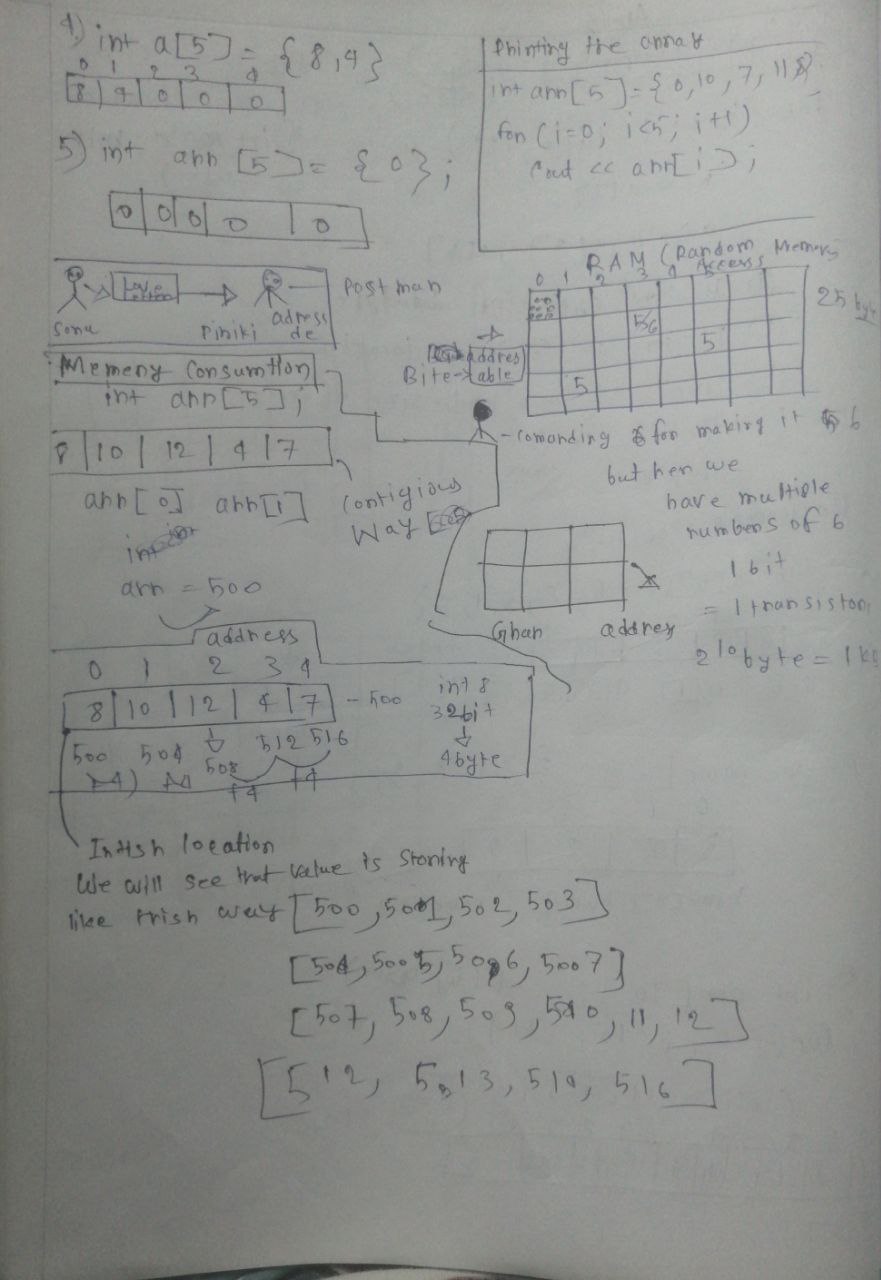 4) int a[5] = {8,4}
0 1 2 3 4
8 4 0 0 0
5) int arr [5] = {0};
0 0 0 0 0
Printing the array
int arr[5] = {0,10,7,11,8}
for (i=0; i<5; i++)
Cout << arr[i];
Sonu
Piniki
adress
de
Post man
RAM (Random Access Memory
0 1 2 3 4 5
25 byte
5/6
5
5
addres
Bite → able
Memeny Consumtion
int arr[5];
8 10 12 4 7
arr[0] arr[1]
int
arr = 500
Contigious
Way
- Comanding for making it 6
but her we
have multiple
numbers of 6
1 bit
= 1 transistor
2 10 byte = 1 k
Ghar addres
address
0 1 2 3 4
8 10 12 4 7 - 500
500 504 508 512 516
+4 +4
int 8
32bit
4byte
location
We will see that value is Storing
like trish way [500, 501, 502, 503]
[504, 5005, 5006, 5007]
[507, 508, 509, 510, 11, 12]
[512, 513, 514, 516]